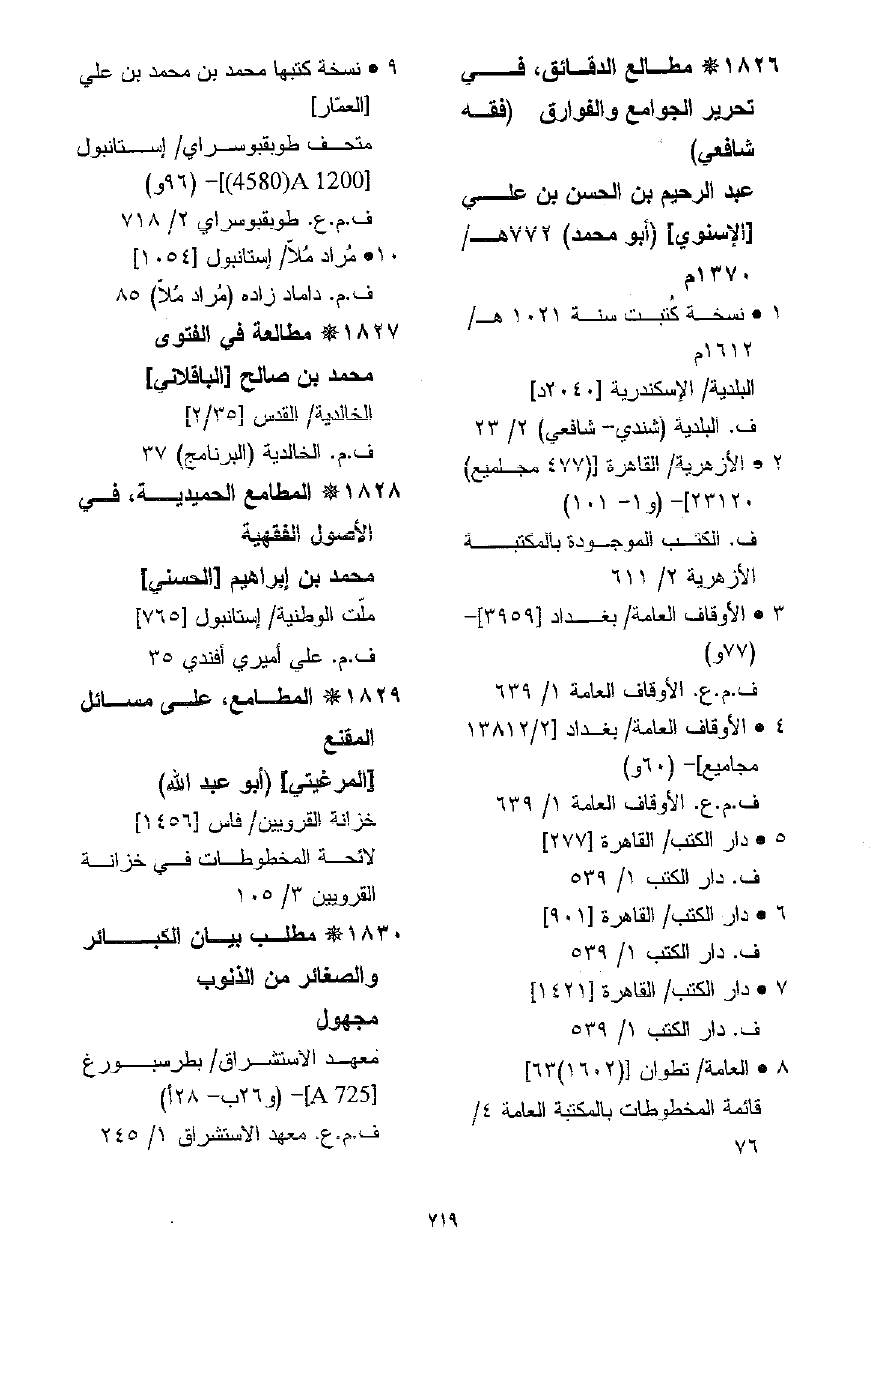 ١٨٢٦* مطالع الدقائق، في
تحرير الجوامع والفوارق (فقه
شافعي)
عبد الرحيم بن الحسن بن علي
[الإسنوي] (أبو محمد) ٧٧٢هـ/
١٣٧٠م
١ • نسخة كُتبت سنة ١٠٢١ هـ/
١٦١٢م
البلدية/ الإسكندرية [٢٠٤٠د]
ف. البلدية (شندي- شافعي) ٢/ ٢٣
٢ • الأزهرية/ القاهرة [(٤٧٧ مجاميع)
٢٣١٢٠]- (و١- ١٠١)
ف. الكتب الموجودة بالمكتبة
الأزهرية ٢/ ٦١١
٣ • الأوقاف العامة/ بغداد [٣٩٥٩]-
(٧٧و)
ف.م.ع. الأوقاف العامة ١/ ٦٣٩
٤ • الأوقاف العامة/ بغداد [١٣٨١٢/٢
مجاميع]- (٦٠و)
ف.م.ع. الأوقاف العامة ١/ ٦٣٩
٥ • دار الكتب/ القاهرة [٢٧٧]
ف. دار الكتب ١/ ٥٣٩
٦ • دار الكتب/ القاهرة [٩٠١]
ف. دار الكتب ١/ ٥٣٩
٧ • دار الكتب/ القاهرة [١٤٢١]
ف. دار الكتب ١/ ٥٣٩
٨ • العامة/ تطوان [(١٦٠٢)٦٣]
قائمة المخطوطات بالمكتبة العامة ٤/
٧٦
٩ • نسخة كتبها محمد بن محمد بن علي
[العمّار]
متحف طوبقبوسراي/ إستانبول
[A 1200(4580)]- (٩٦و)
ف.م.ع. طوبقبوسراي ٢/ ٧١٨
١٠• مُراد مُلاّ/ إستانبول [١٠٥٤]
ف.م. داماد زاده (مُراد مُلاّ) ٨٥
١٨٢٧* مطالعة في الفتوى
محمد بن صالح [الباقلاني]
الخالدية/ القدس [٢/٣٥]
ف.م. الخالدية (البرنامج) ٣٧
١٨٢٨* المطامع الحميدية، في
الأصول الفقهية
محمد بن إبراهيم [الحسني]
ملّت الوطنية/ إستانبول [٧٦٥]
ف.م. علي أميري أفندي ٣٥
١٨٢٩* المطامع، على مسائل
المقنع
[المرغيتي] (أبو عبد الله)
خزانة القرويين/ فاس [١٤٥٦]
لائحة المخطوطات في خزانة
القرويين ٣/ ١٠٥
١٨٣٠* مطلب بيان الكبائر
والصغائر من الذنوب
مجهول
معهد الاستشراق/ بطرسبورغ
[A 725]- (و٢٦ب- ٢٨أ)
ف.م.ع. معهد الاستشراق ١/ ٢٤٥
٧١٩